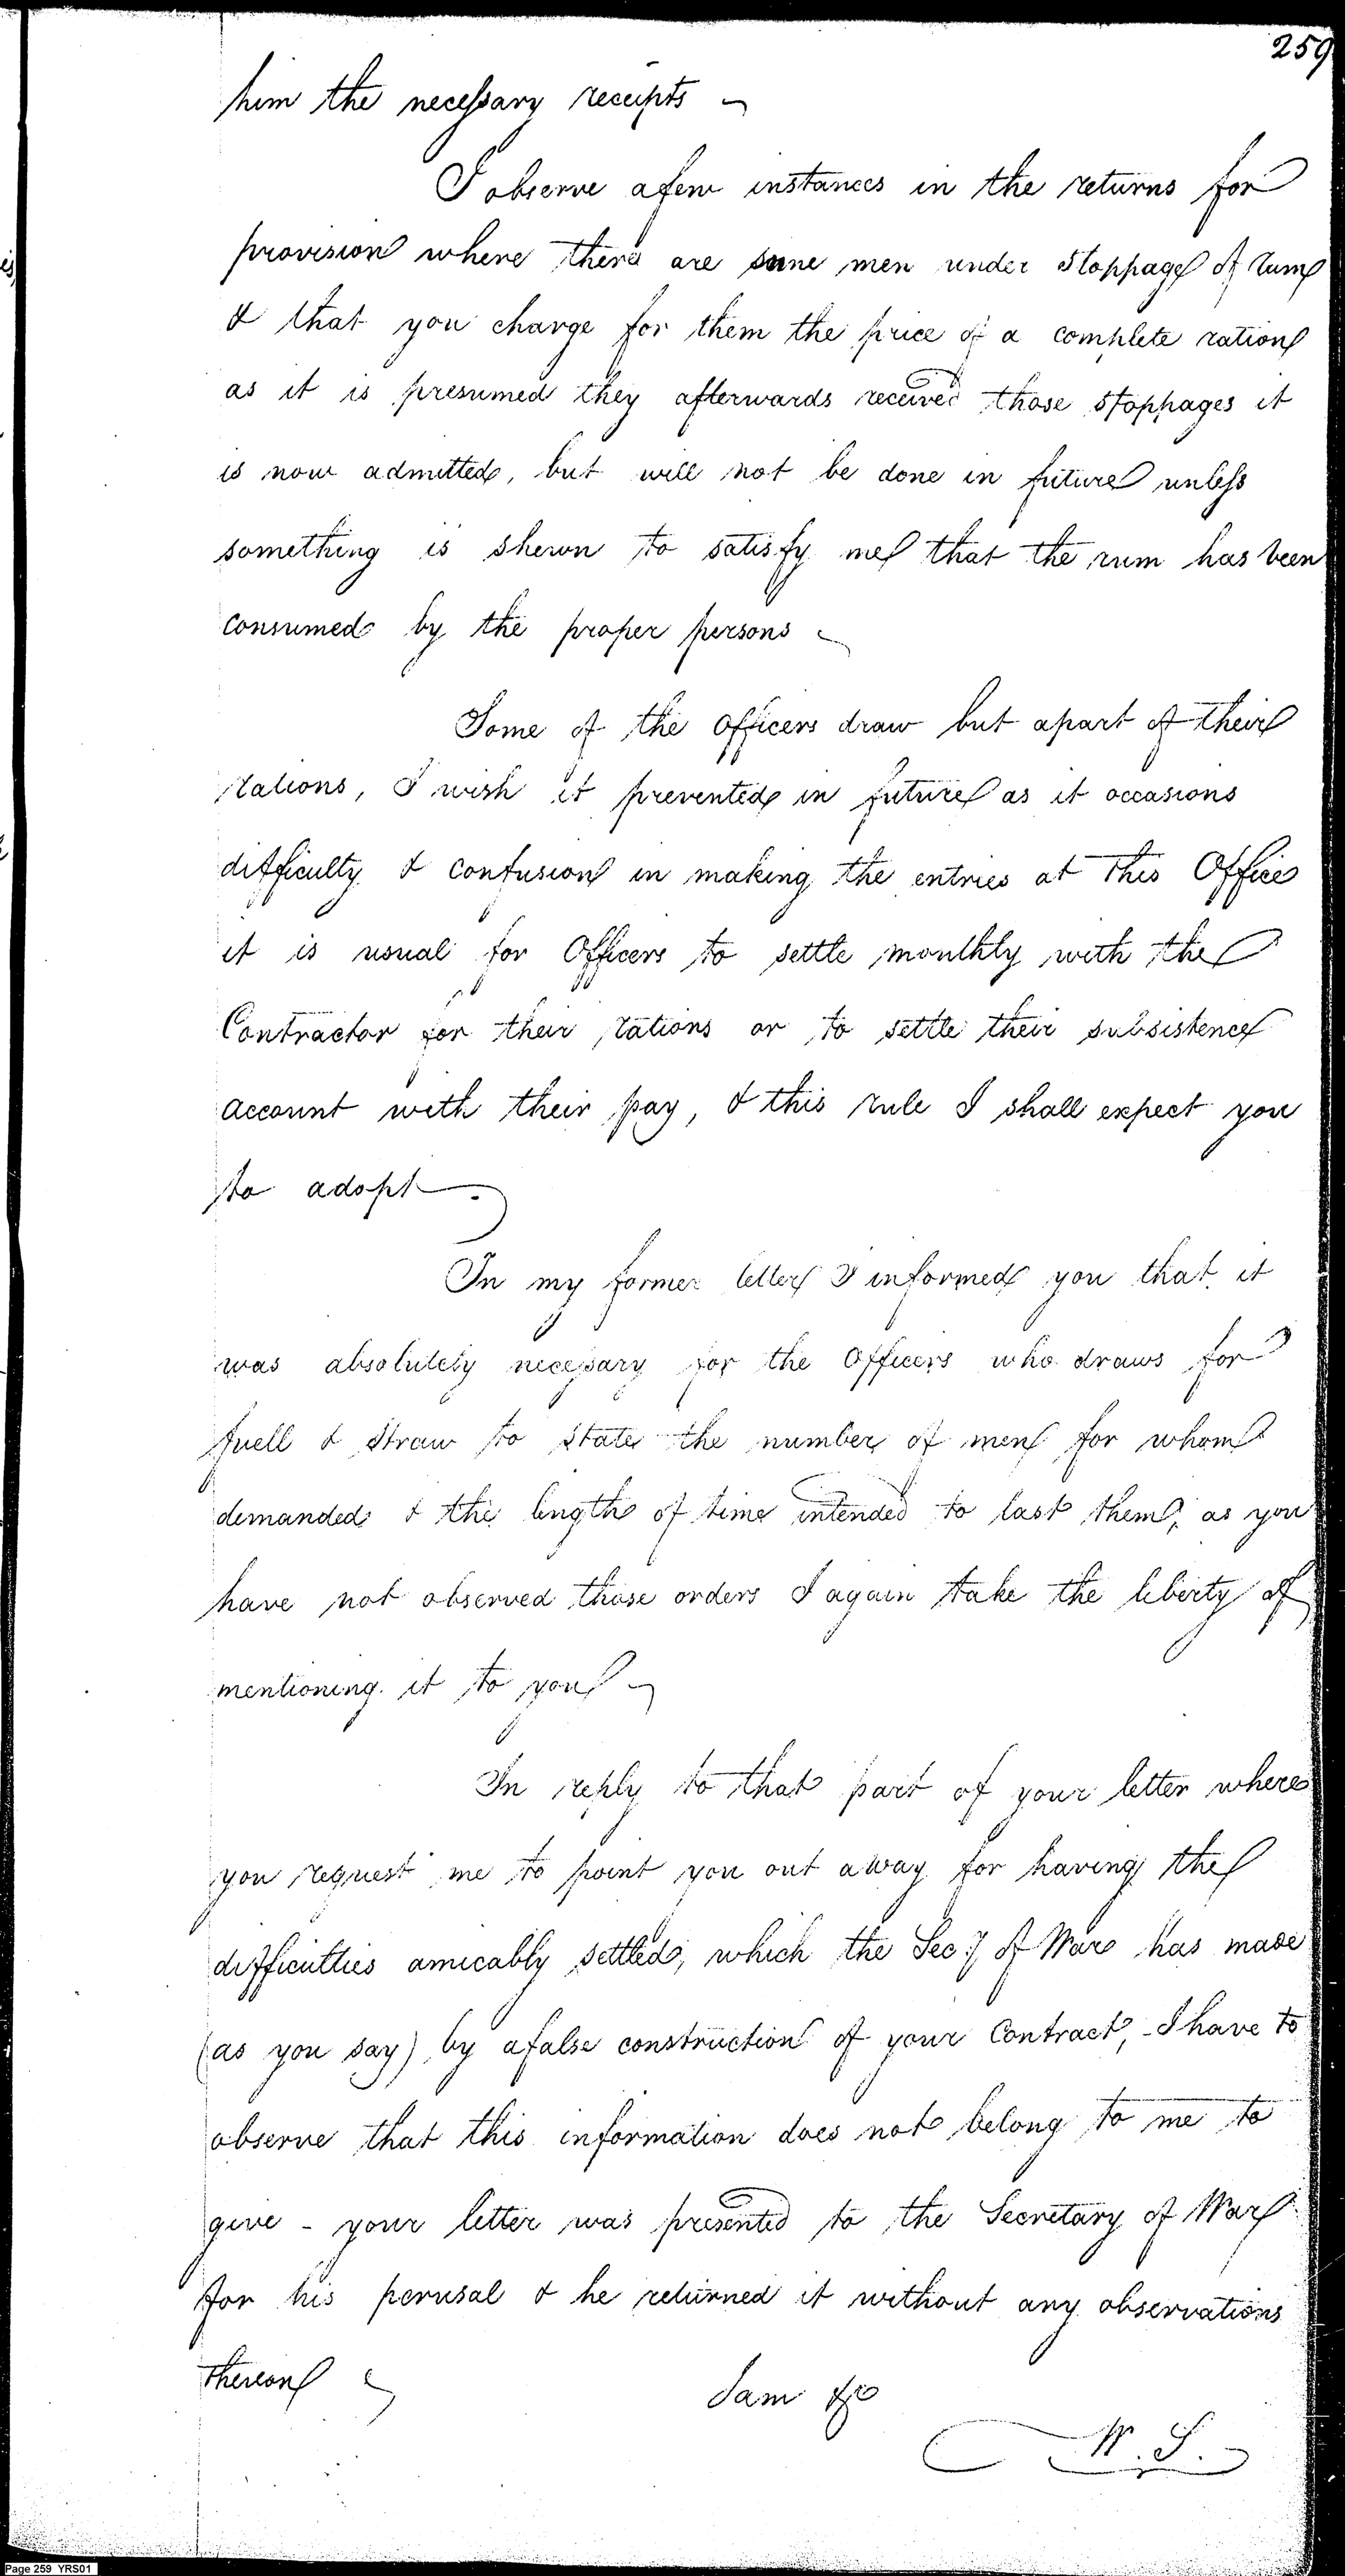 259
him the necessary receipts ~
I observe afew instances in the returns for
provision where there are some men under stoppage of rum
& that you charge for them the price of a complete ration
as it is presumed they afterwards received those stoppages it
is now admitted, but will not be done in future unless
something is shewn to satisfy me that the rum has been
consumed by the proper persons ~
Some of the officers draw but apart of their
rations, I wish it prevented in future as it occasions
difficulty & confusion in making the entries at this Office
it is usual for Officers to settle monthly with the
Contractor for their rations or to settle their subsistence
account with their pay, & this rule I shall expect you
to adopt.
In my former letter I informed you that it
was absolutely necessary for the Officers who draws for
fuell & straw to state the number of men for whom
demanded & the length of time intended to last them, as you
have not observed those orders I again take the liberty of
mentioning it to you ~
In reply to that part of your letter where
you request me to point you out away for having the
difficulties amicably settled, which the Secy of War has made
(as you say) by afalse construction of your Contract, - I have to
observe that this information does not belong to me to
give - your letter was presented to the Secretary of War
for his perusal & he returned it without any observations
thereon ~
I am &c
W. S.
Page 259 YRS01